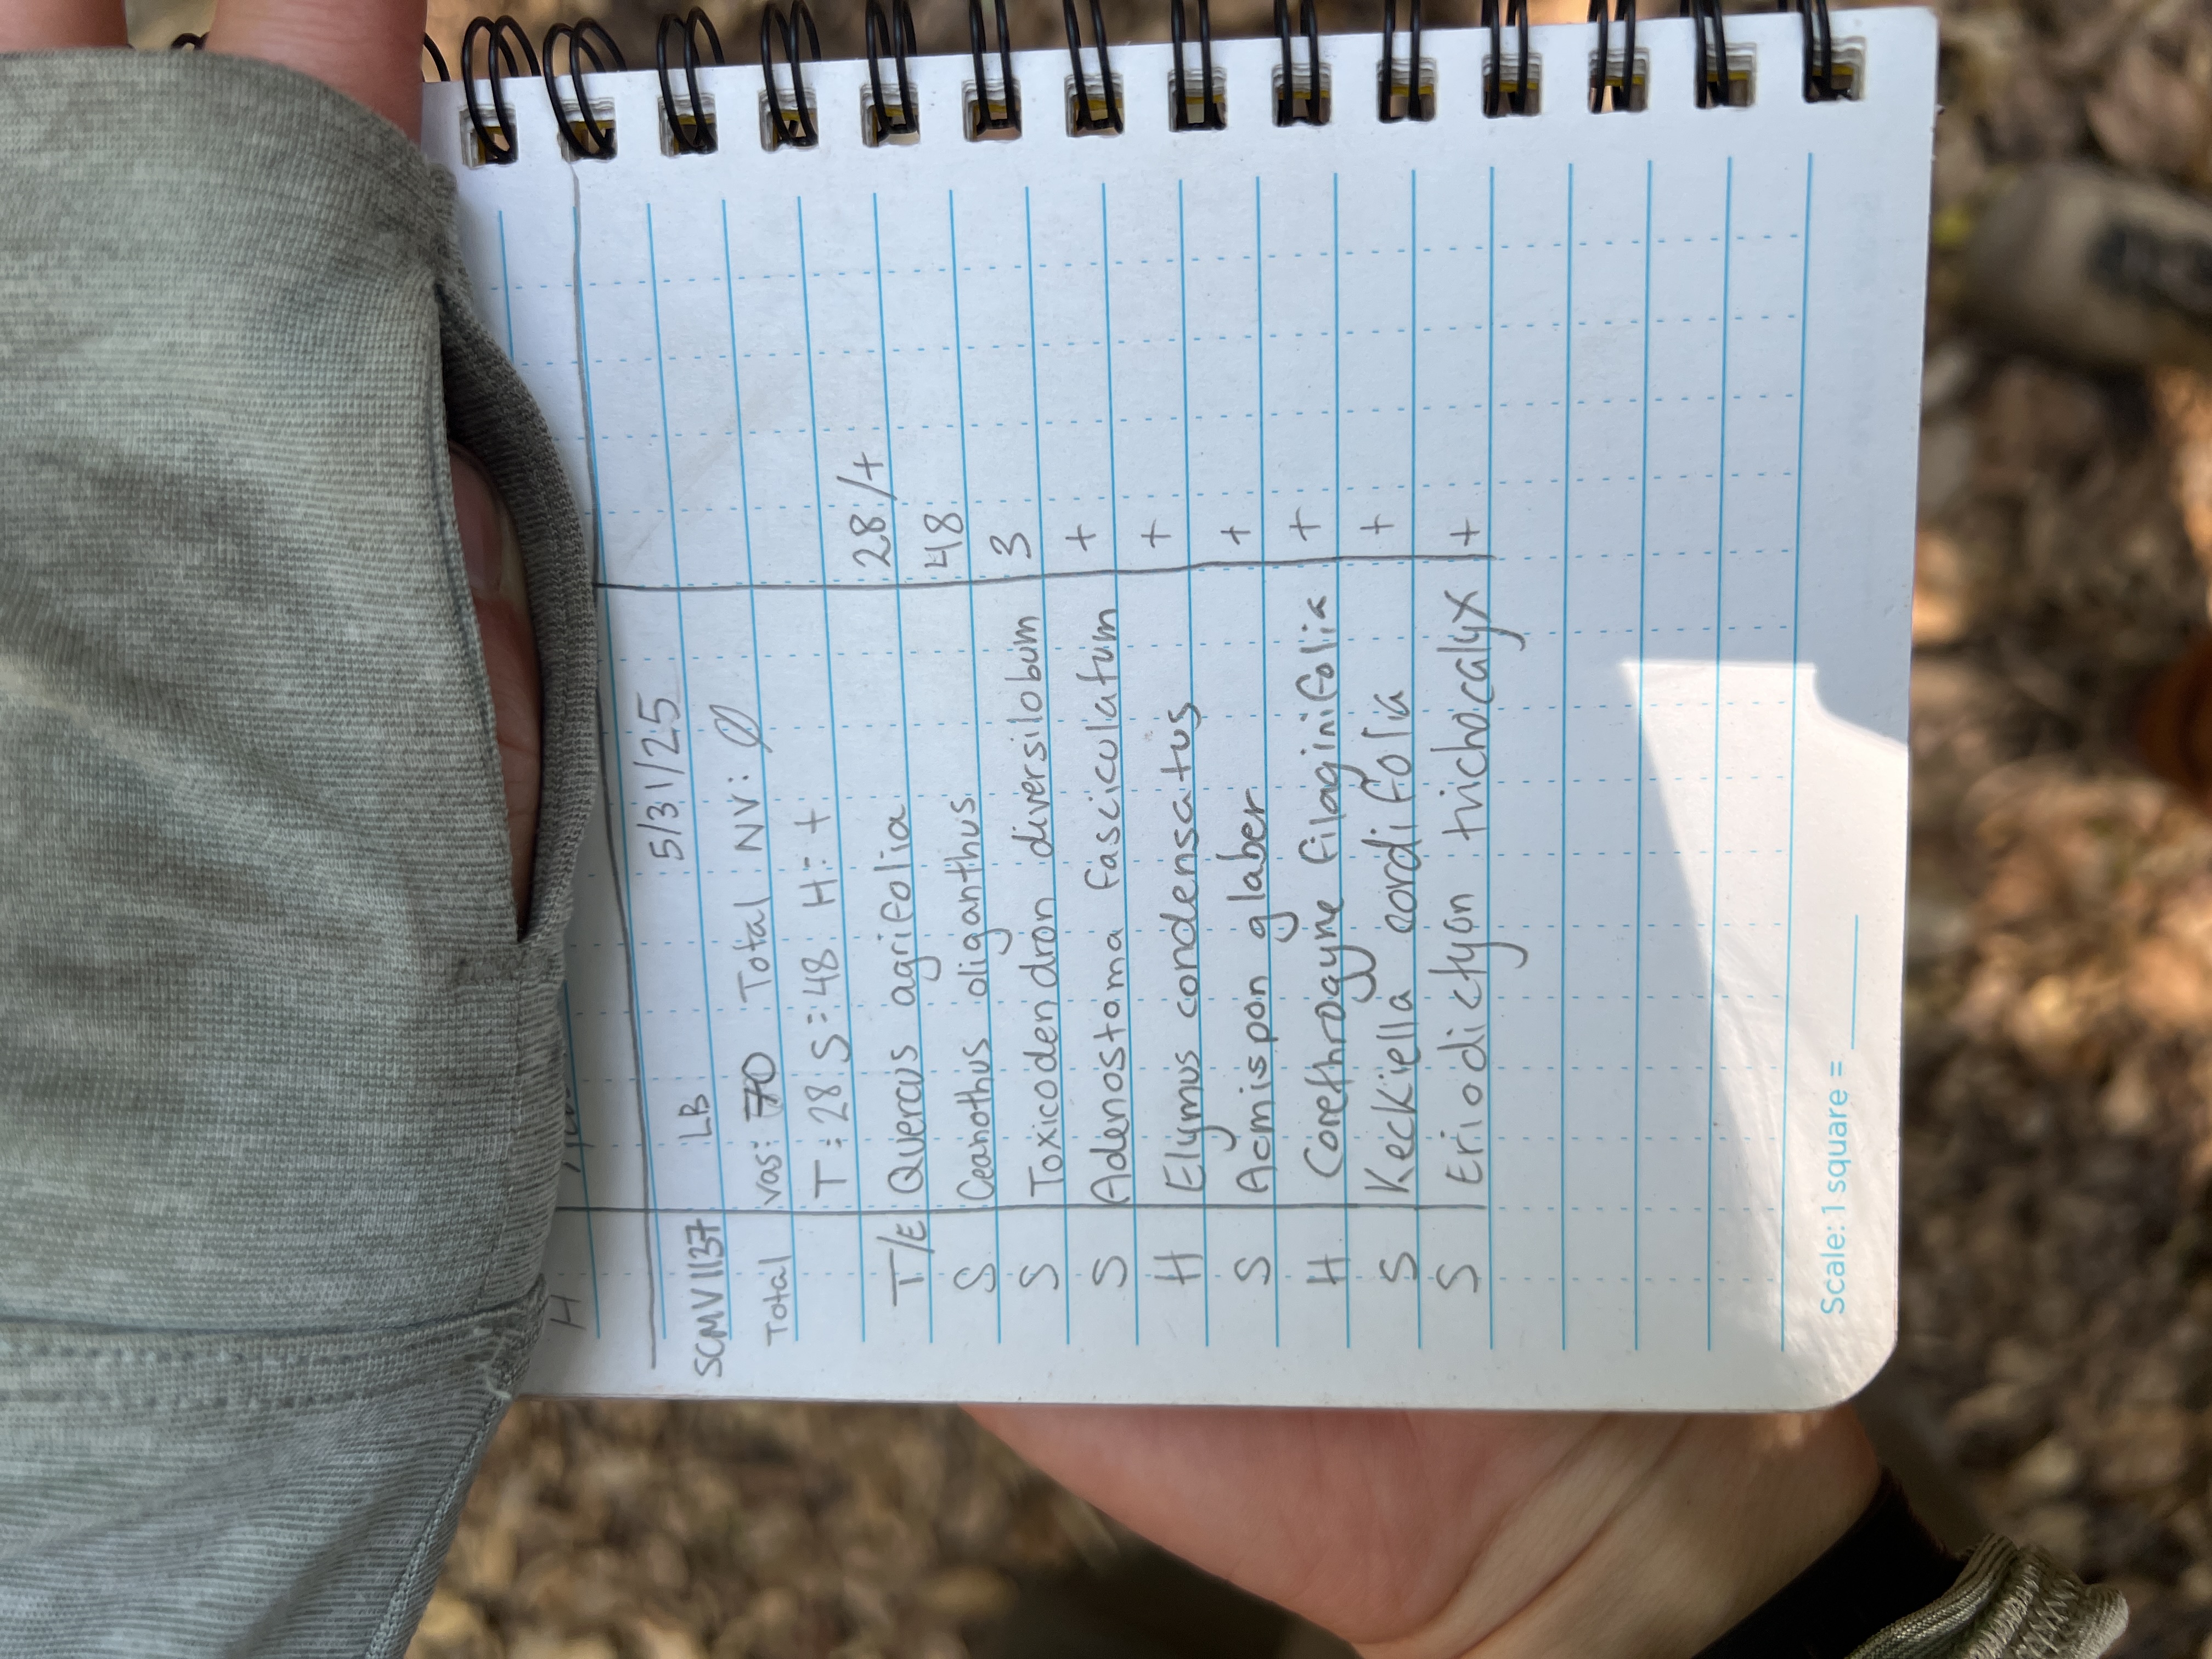 H
SCMV1137 LB 5/31/25
Total vas: 70 Total NV: Ø
T: 28 S: 48 H: +
T/E Quercus agrifolia 28/+
S Ceanothus oliganthus 48
S Toxicodendron diversilobum 3
S Adenostoma fasciculatum +
H Elymus condensatus +
S Acmispon glaber +
H Corethrogyne filaginifolia +
S Keckiella cordifolia +
S Eriodictyon trichocalyx +
Scale: 1 square = ____